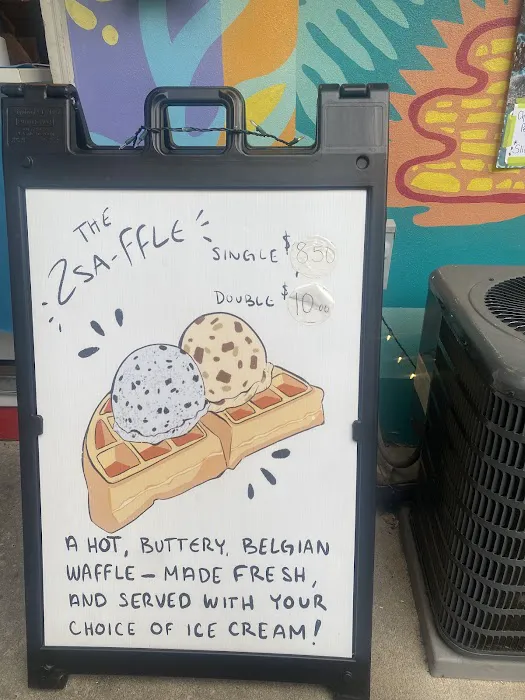 THE
ZSA-FFLE
SINGLE $8.50
DOUBLE $10.00
A HOT, BUTTERY, BELGIAN
WAFFLE — MADE FRESH,
AND SERVED WITH YOUR
CHOICE OF ICE CREAM!